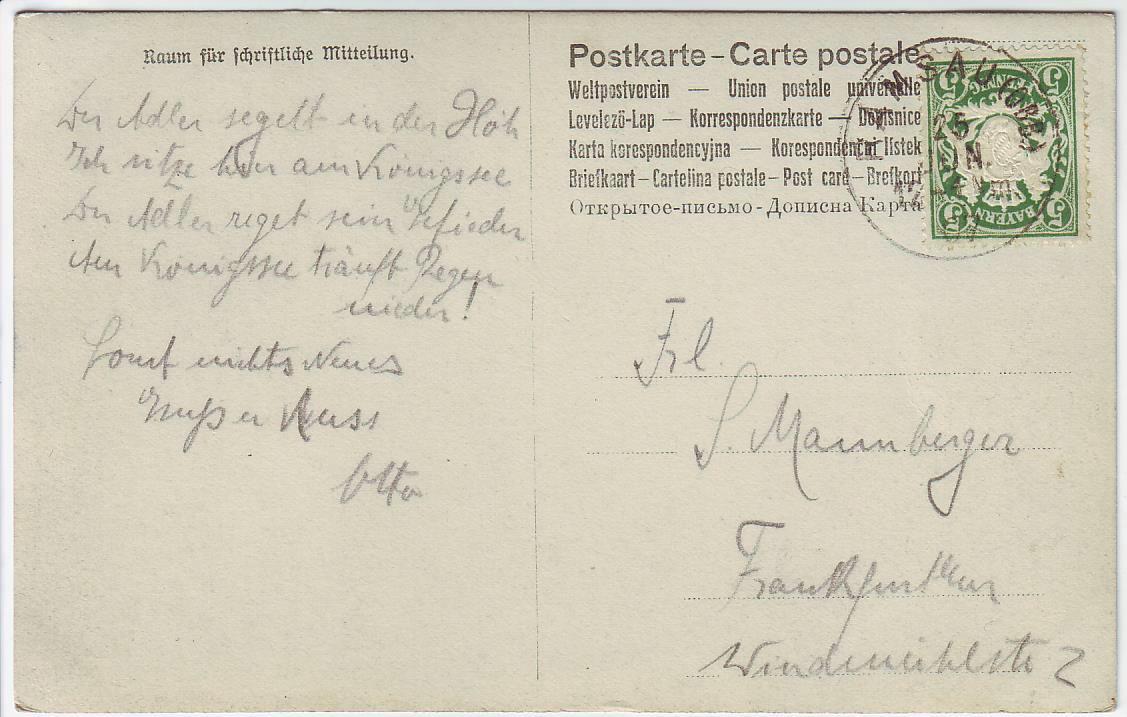 Raum für schriftliche Mitteilung.
Der Adler segelt in der Höh
Ich sitze hier am Königssee
Der Adler reget sein Gefieder
Am Königssee träuft Regen
nieder!
Sonst nichts Neues
Otto
Postkarte – Carte postale
Weltpostverein — Union postale universelle
Levelező-Lap — Korrespondenzkarte — Dopisnice
Karta korespondencyjna — Korespondenční listek
Briefkaart - Cartolina postale - Post card - Brefkort
Открытое-письмо - Дописна Карта
RAMSAU
25
JUN.
5
5
PFENNIG
BAYERN
5
5
Frl.
S. Mannberger
Frankfurt
Windmühlstr 2